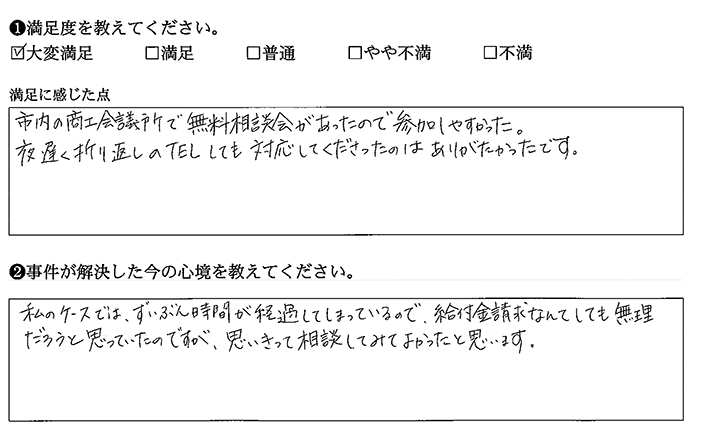 ❶満足度を教えてください。
☑大変満足 □満足 □普通 □やや不満 □不満
満足に感じた点
市内の商工会議所で無料相談会があったので参加しやすかった。
夜遅く折り返しのTELしても対応してくださったのはありがたかったです。
❷事件が解決した今の心境を教えてください。
私のケースでは、ずいぶん時間が経過してしまっているので、給付金請求なんてしても無理
だろうと思っていたのですが、思いきって相談してみてよかったと思います。